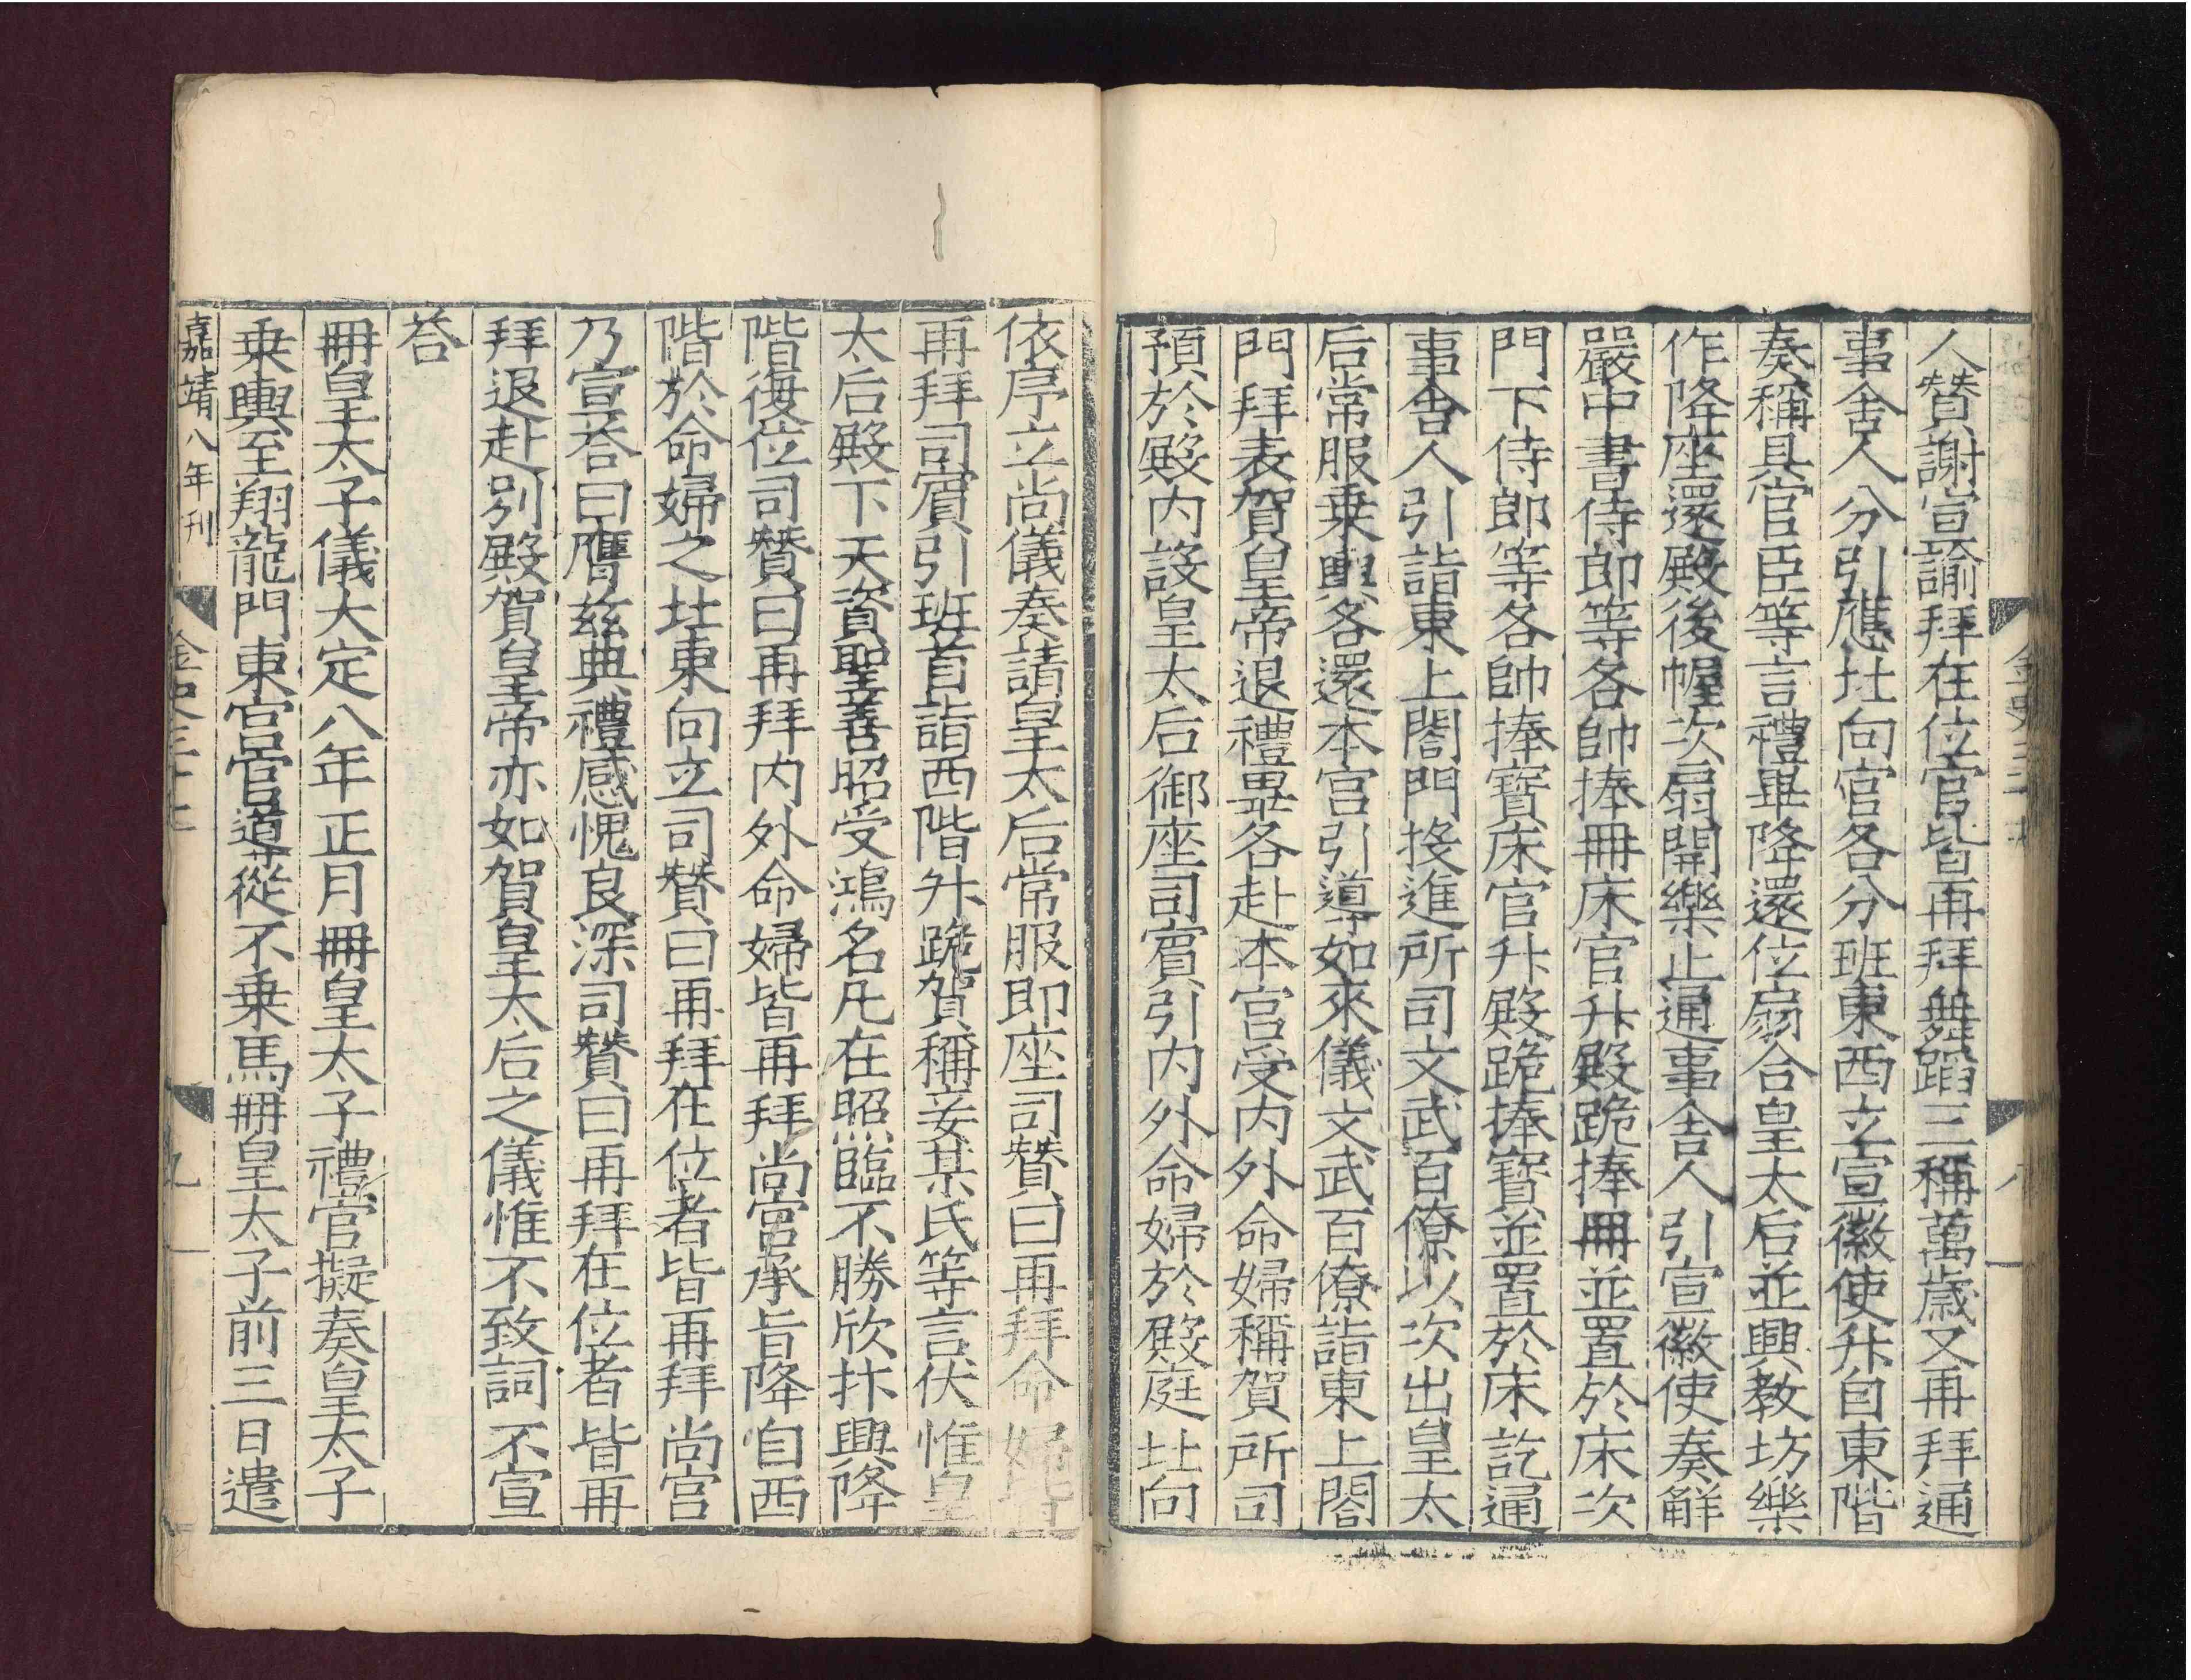 人贊謝宣諭拜在位官皆再拜舞蹈三稱萬歲又再拜通
事舍人分引應北向官各分班東西立宣徽使升自東階
奏稱具官臣等言禮畢降還位扇合皇太后並興教坊樂
作降座還殿後幄次扇開樂止通事舍人引宣徽使奏解
嚴中書侍郎等各帥捧冊床官升殿跪捧冊並置於床次
門下侍郎等各帥捧寶床官升殿跪捧寶並置於床訖通
事舍人引詣東上閤門投進所司文武百僚以次出皇太
后常服乗輿各還本宮引導如來儀文武百僚詣東上閤
門拜表賀皇帝退禮畢各赴本宮受内外命婦稱賀所司
預於殿内設皇太后御座司賓引内外命婦於殿庭北向
依序立尚儀奏請皇太后常服即座司贊曰再拜命婦皆
再拜司賓引班首詣西階升跪賀稱妾某氏等言伏惟皇
太后殿下天資聖善昭受鴻名凡在照臨不勝欣抃興降
階復位司贊曰再拜内外命婦皆再拜尚宮承旨降自西
階於命婦之北東向立司贊曰再拜在位者皆再拜尚宮
乃宣荅曰膺兹典禮感愧良深司贊曰再拜在位者皆再
拜退赴别殿賀皇帝亦如賀皇太后之儀惟不致詞不宣
荅
冊皇太子儀大定八年正月冊皇太子禮官擬奏皇太子
乗輿至翔龍門東宮官導從不乗馬冊皇太子前三日遣
嘉靖八年刊 金史三十七 九